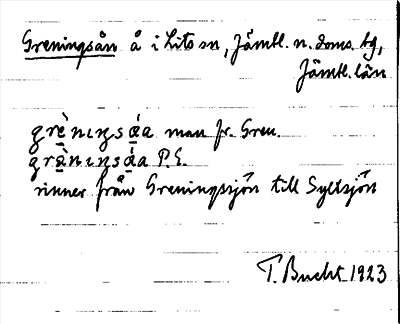 Greningsån å i Lits sn, Jämtl. n. doms. bg,
Jämtl. län
grèni̇ngsá̤a man fr. Gren.
grä̀ningsá̤a P.E.
rinner från Greningsjön till Syltsjön
T. Bucht 1923